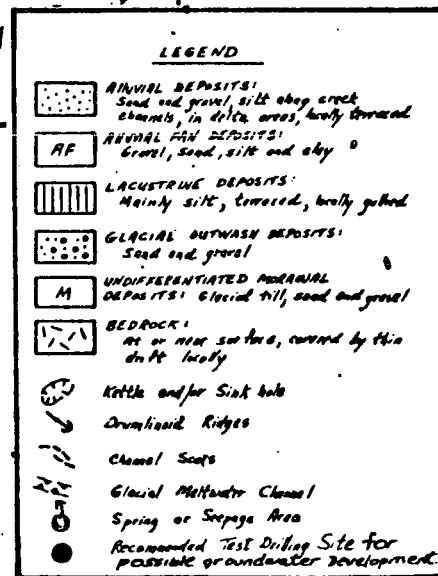 LEGEND
ALLUVIAL DEPOSITS:
Sand and gravel, silt along creek
channels, in delta areas, locally terraced
AF
ALLUVIAL FAN DEPOSITS:
Gravel, sand, silt and clay
LACUSTRINE DEPOSITS:
Mainly silt, terraced, locally gullied
GLACIAL OUTWASH DEPOSITS:
Sand and gravel
M
UNDIFFERENTIATED MORAINAL
DEPOSITS: Glacial till, sand and gravel
BEDROCK:
At or near surface, covered by thin
drift locally
Kettle and/or Sink hole
Drumlinoid Ridges
Channel Scars
Glacial Meltwater Channel
Spring or Seepage Area
Recommended Test Drilling Site for
possible groundwater development